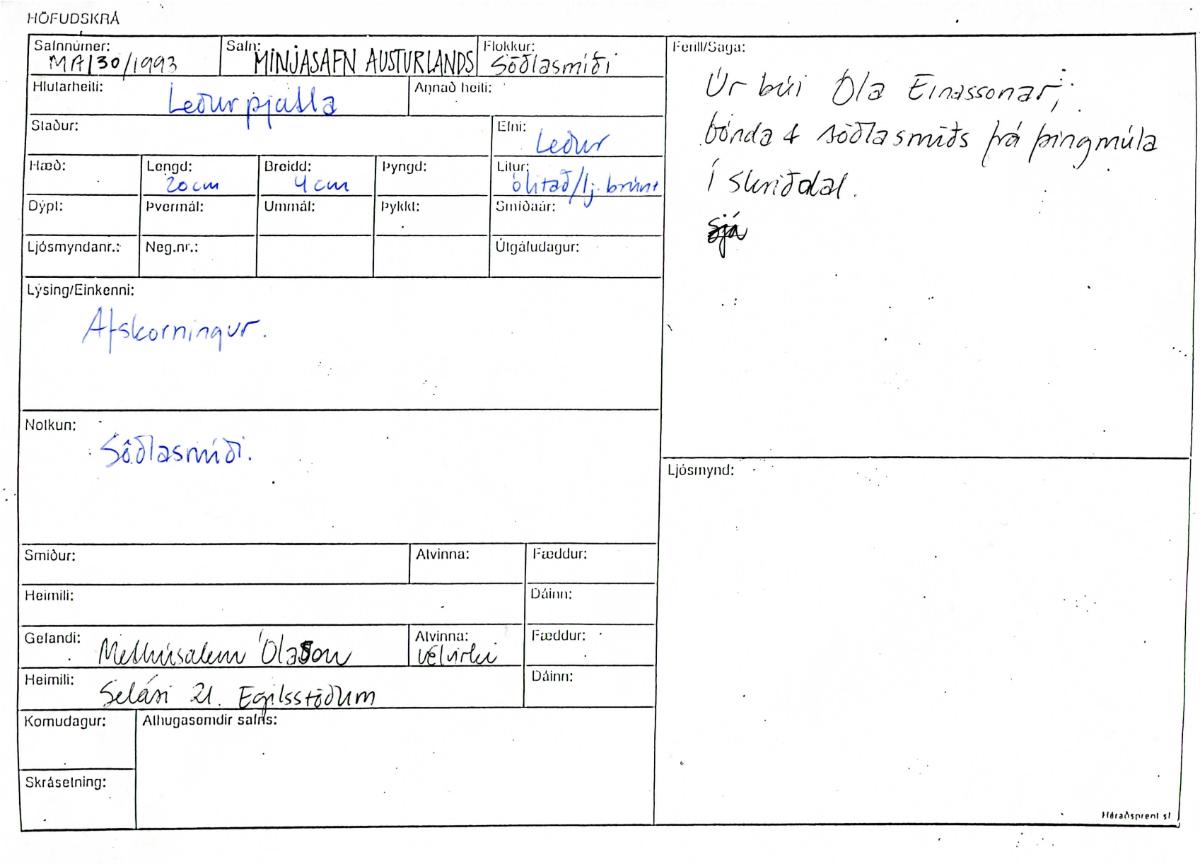 HÖFUÐSKRÁ
Safnnúmer: MA/30/1993
Safn: MINJASAFN AUSTURLANDS
Flokkur: Söðlasmíði
Hlutarheiti: Leðurpjatla
Annað heiti:
Staður:
Efni: Leður
Hæð:
Lengd: 20 cm
Breidd: 4 cm
Þyngd:
Litur: ólitað/lj. brúnt
Dýpt:
Þvermál:
Ummál:
Þykkt:
Smíðaár:
Ljósmyndanr.:
Neg.nr.:
Útgáfudagur:
Lýsing/Einkenni:
Afskorningur.
Notkun:
Söðlasmíði.
Smiður:
Atvinna:
Fæddur:
Heimili:
Dáinn:
Gefandi: Methúsalem Ólason
Atvinna: vélvirki
Fæddur:
Heimili: Selási 21. Egilsstöðum
Dáinn:
Komudagur:
Athugasemdir safns:
Skrásetning:
Ferill/Saga:
Úr búi Óla Einassonar,
bónda & söðlasmiðs frá þingmúla
í skriðdal.
sjá
Ljósmynd:
Héraðsprent sf